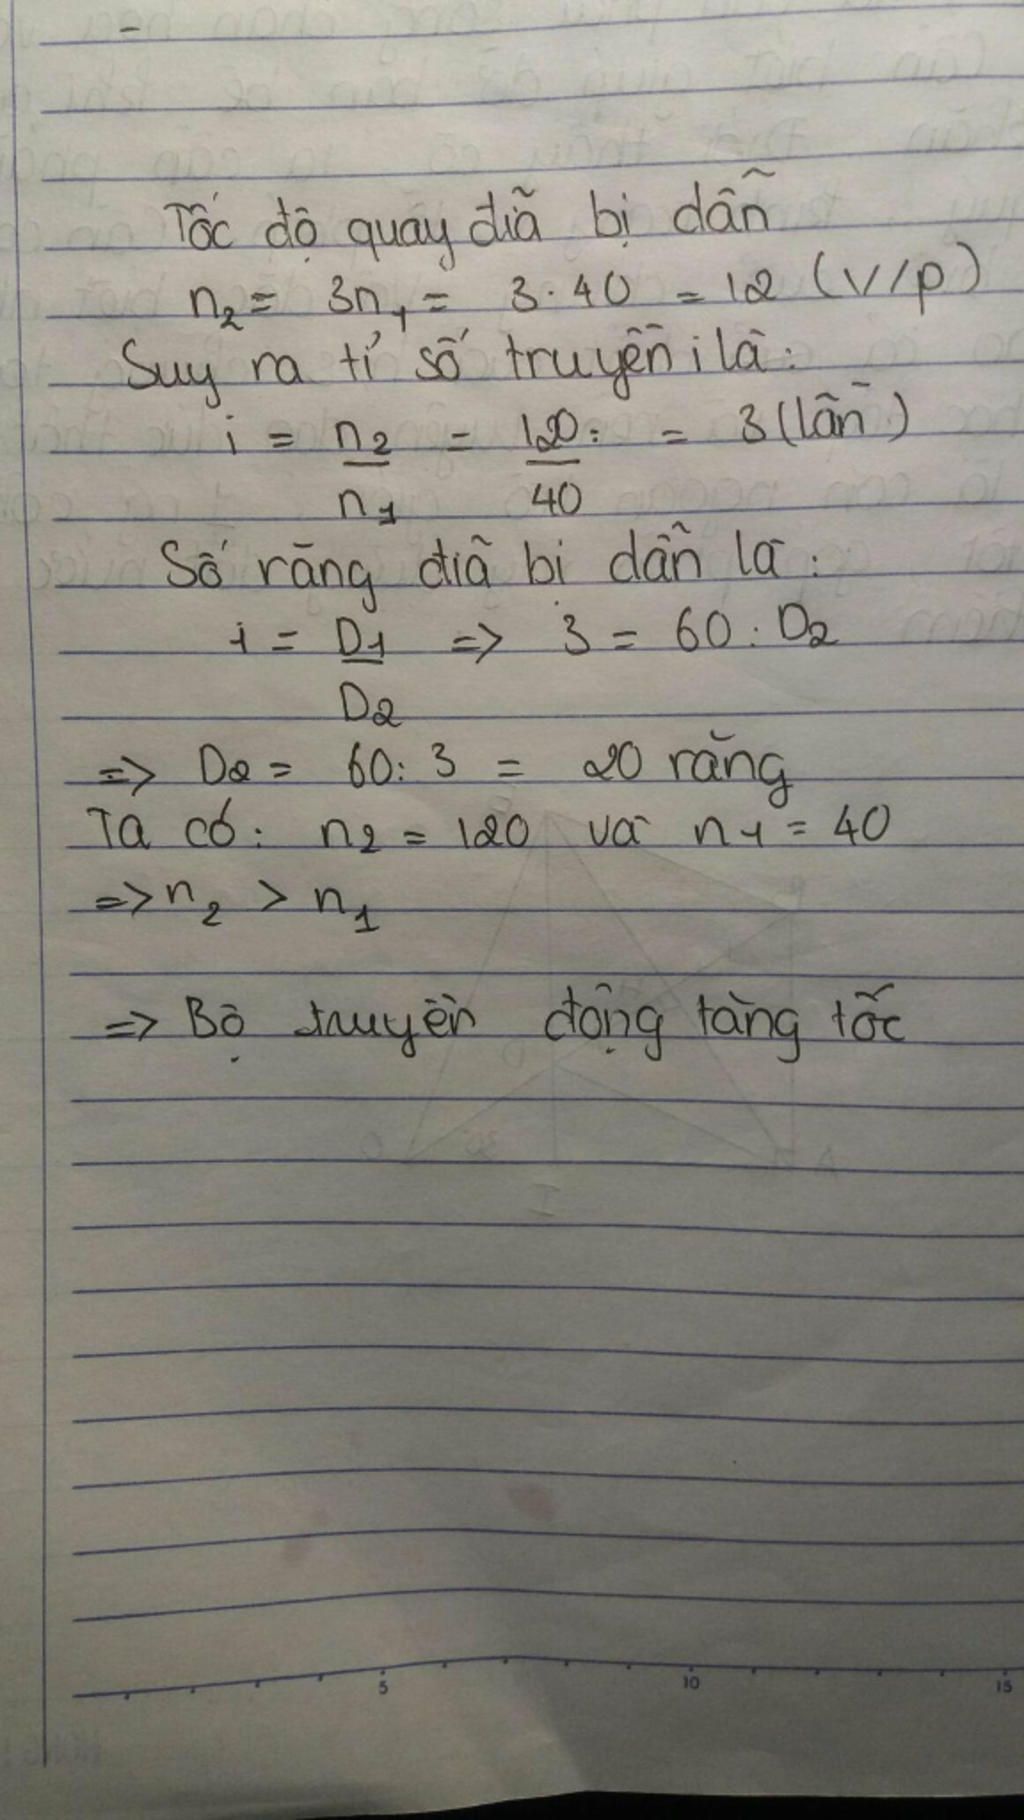 Tốc độ quay đĩa bị dẫn
n₂ = 3n₁ = 3 . 40 = 12 (v/p)
Suy ra tỉ số truyền i là :
i = n₂/n₁ = 120:/40 = 3 (lần)
Số răng đĩa bị dẫn là :
i = D₁/D₂ => 3 = 60 : D₂
=> D₂ = 60 : 3 = 20 răng
Ta có : n₂ = 120 và n₁ = 40
=> n₂ > n₁
=> Bộ truyền động tăng tốc
5 10 15